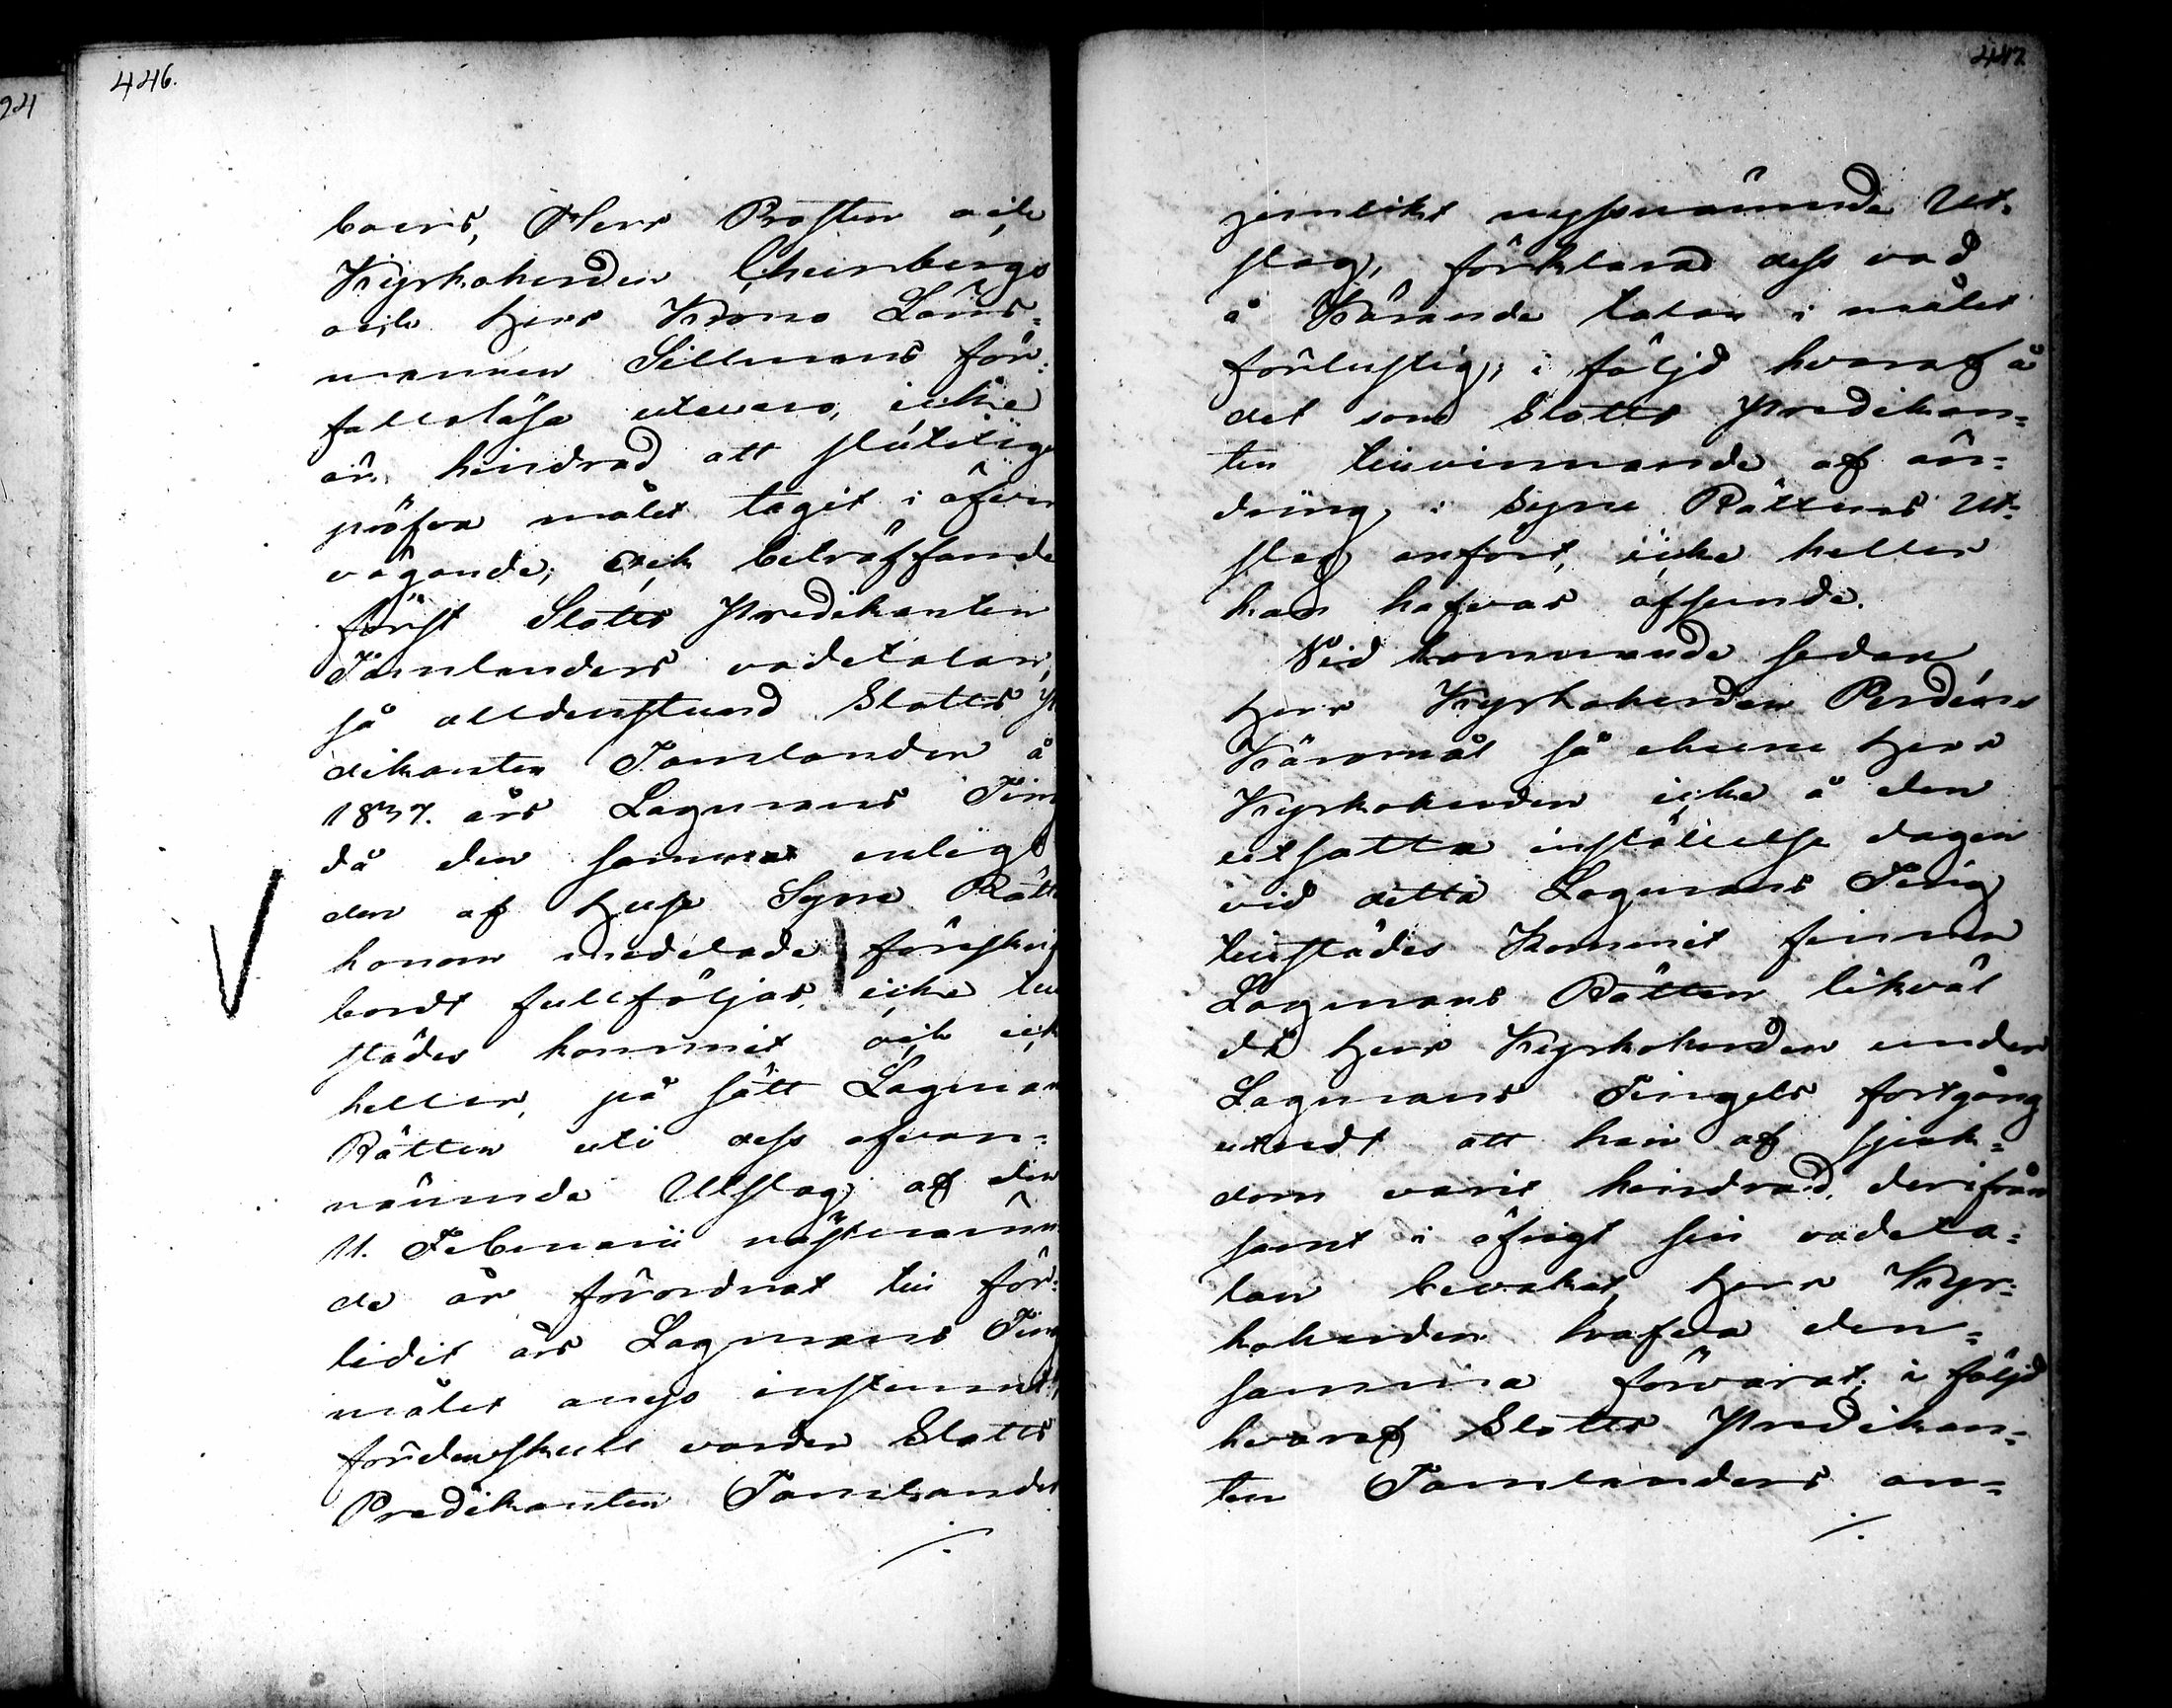 446.
boers, Herr Prosten och
Kyrkoherden Cheinbergs
och Herr Krono Läns-
mannen Sillmans för-
fallolösa utevaro, icke
är hindrad att slutelige
pröfva målet tagit i öfver
vägande; Och beträffande
först Slotts Predikanten
Tamlanders vadetalan,
så alldenstund Slotts Pre
dikanten Tamlander å
1837. års Lagmans Ting
då den sammat enligt
den af Huse Syne Rätt
honom meddelade föreskrif
bordt fullföljas, icke till
städes kommit och ick
heller, på sätt Lagman
Rätten uti dess ofvan-
nämnde Utslag af den
11. Februarii nästnämn
de år förordnat till för-
lidit års Lagmans Ting
målet anyo instemmt,
fördenskull varder Slotts
Predikanten Tamlander
./.
447
jemlikt nyssnämnde Ut-
slag, förklarad dess vad
å Kärande talan i målet
förlustig; i följd hvaraf å
det som Slotts Predikan-
ten till vinnande af än-
dring i Syne Rättens Ut-
slag anfört, icke heller
kan hafvas afseende.
Vid kommande sedan
Herr Kyrkoherden Perdéns
Käromål så ehuru Herr
Kyrkoherden icke å den
utsatta inställelse dagen
vid detta Lagmans Ting
tillstädes kommit finner
Lagmans Rätten likväl
då Herr Kyrkoherden under
Lagmans Tingets fortgång
utredt att han af sjuk-
dom varit hindrad derifrån
samt i öfrigt sin vadeta-
lan bevakat, Herr Kyr-
koherden hafva den-
samma förvarat; i följd
hvaraf Slotts Predikan-
ten Tamlanders an-
./.